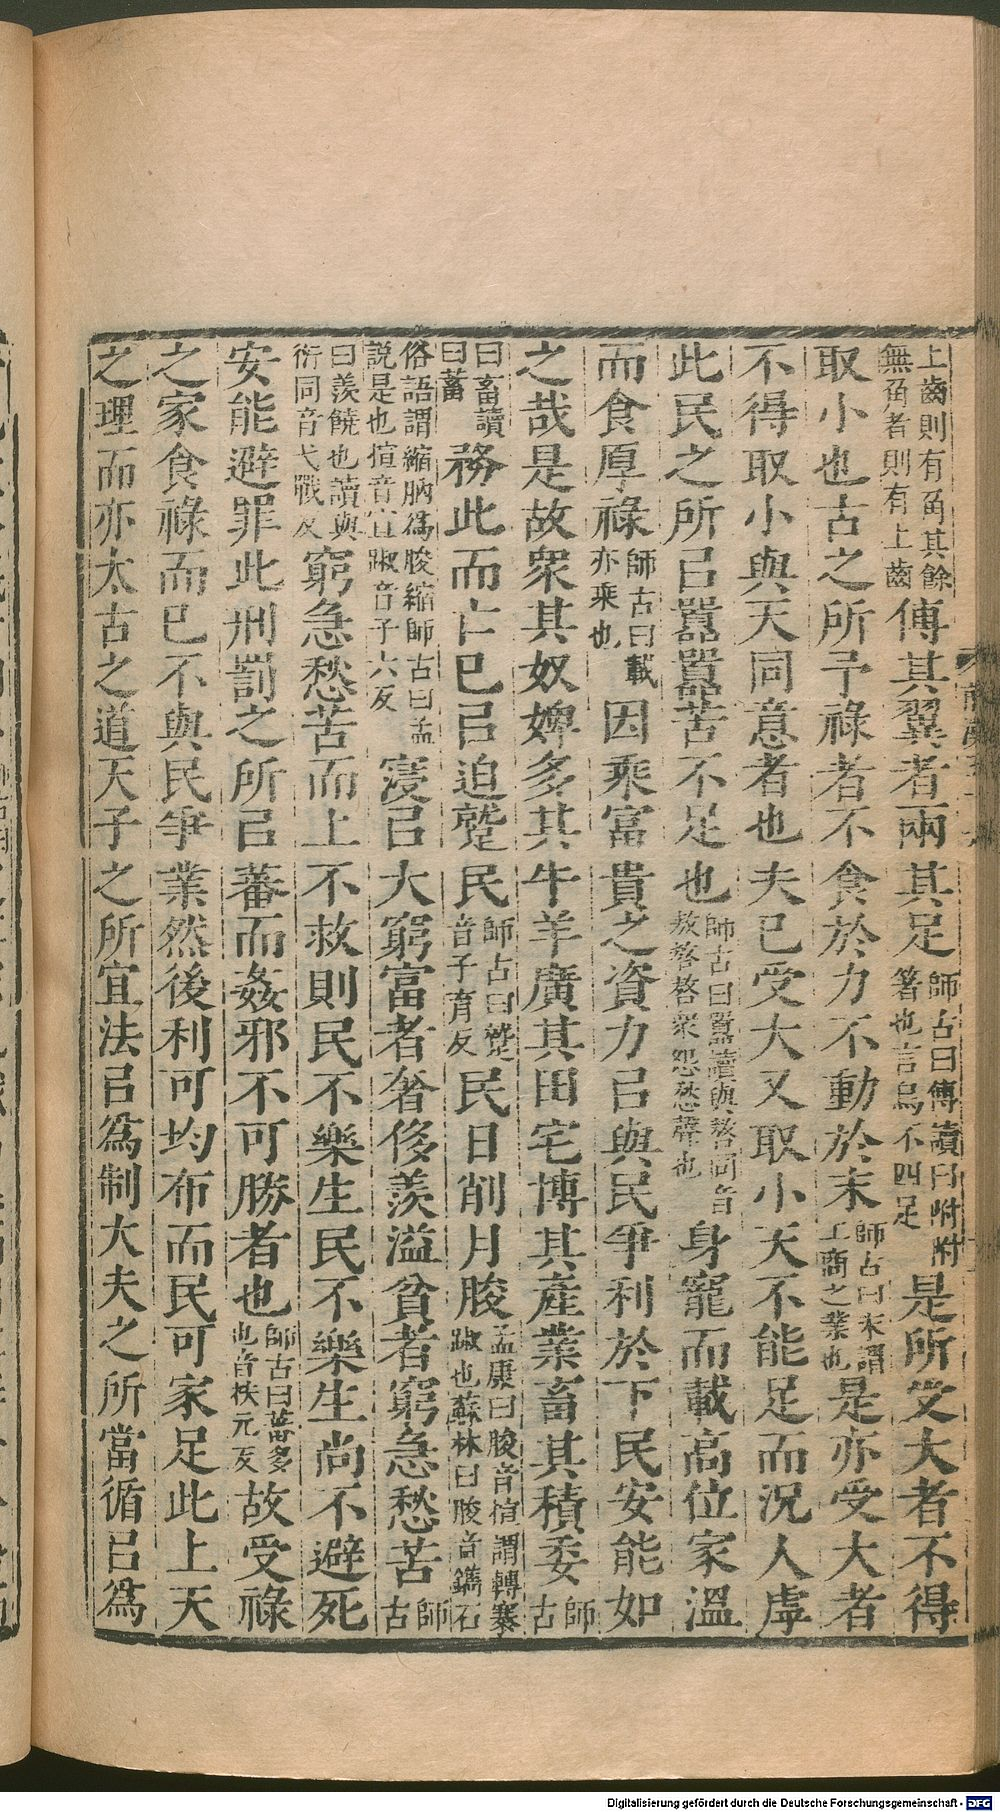 上齒則有角其餘無角者則有上齒傅其翼者兩其足師古曰傅讀曰附附箸也言鳥不四足是所受大者不得
取小也古之所予祿者不食於力不動於末師古曰末謂工商之業也是亦受大者
不得取小與天同意者也夫已受大又取小天不能足而況人虖
此民之所㠯囂囂苦不足也師古曰囂讀與嗸同音敖嗸嗸衆怨愁聲也身寵而載高位家溫
而食厚祿師古曰載亦乘也因乘富貴之資力㠯與民爭利於下民安能如
之哉是故衆其奴婢多其牛羊廣其田宅博其產業畜其積委師古
曰畜讀曰蓄務此而亡已㠯迫蹵民師古曰蹵音子育反民日削月朘孟康曰朘音揎謂轉褰踧也蘇林曰朘音鐫石
俗語謂縮朒爲朘縮師古曰孟說是也揎音宣踧音子六反寖㠯大窮富者奢侈羨溢貧者窮急愁苦師古
曰羨饒也讀與衍同音弋戰反窮急愁苦而上不救則民不樂生民不樂生尚不避死
安能避罪此刑罰之所㠯蕃而姦邪不可勝者也師古曰蕃多也音扶元反故受祿
之家食祿而已不與民爭業然後利可均布而民可家足此上天
之理而亦太古之道天子之所宜法㠯爲制大夫之所當循㠯爲
Digitalisierung gefördert durch die Deutsche Forschungsgemeinschaft - DFG